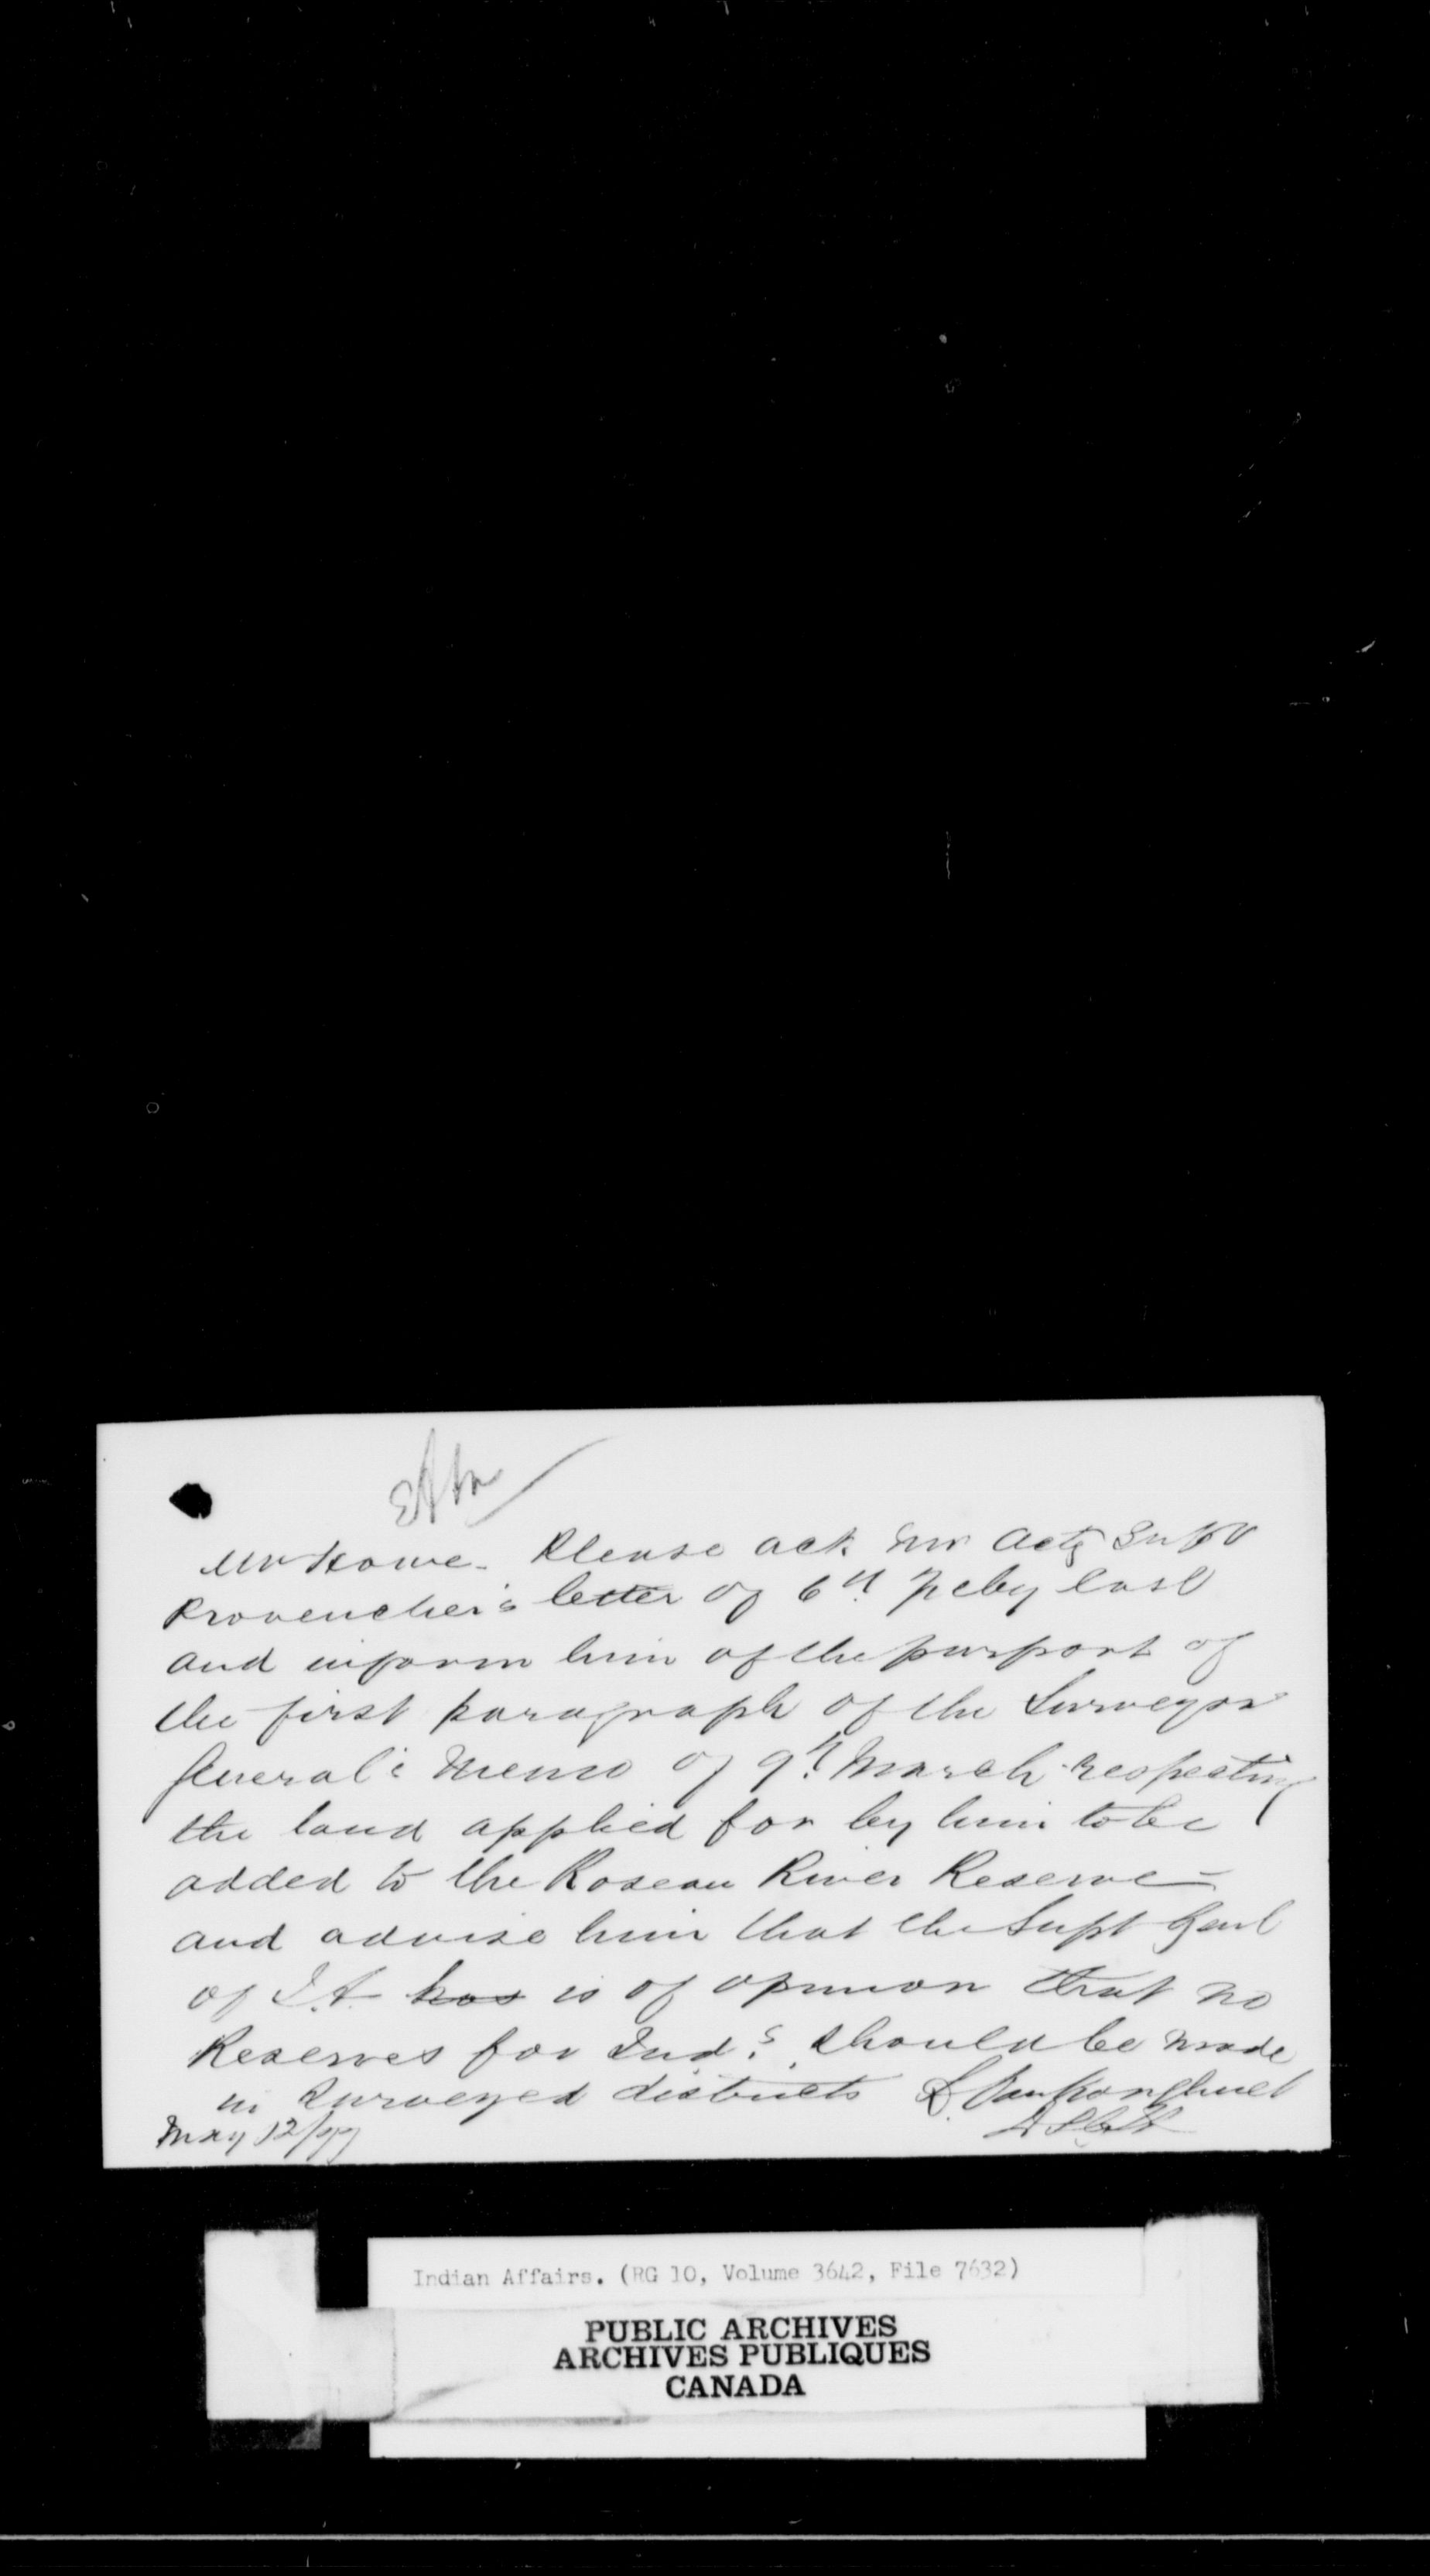 Mr Howe. Please ack. Mr Actg Supt
Provencher's letter of 6th Feby last
and inform him of the purport of
the first paragraph of the Surveyor
General's Memo of 9th March respecting
the land applied for by him to be
added to the Roseau River Reserve -
and advise him that the Supt Genl
of I.A. has is of opinion that no
Reserves for Inds. should be made
in surveyed districts L Vankoughnet
May 12/77
Indian Affairs. (RG 10, Volume 3642, File 7632)
PUBLIC ARCHIVES
ARCHIVES PUBLIQUES
CANADA